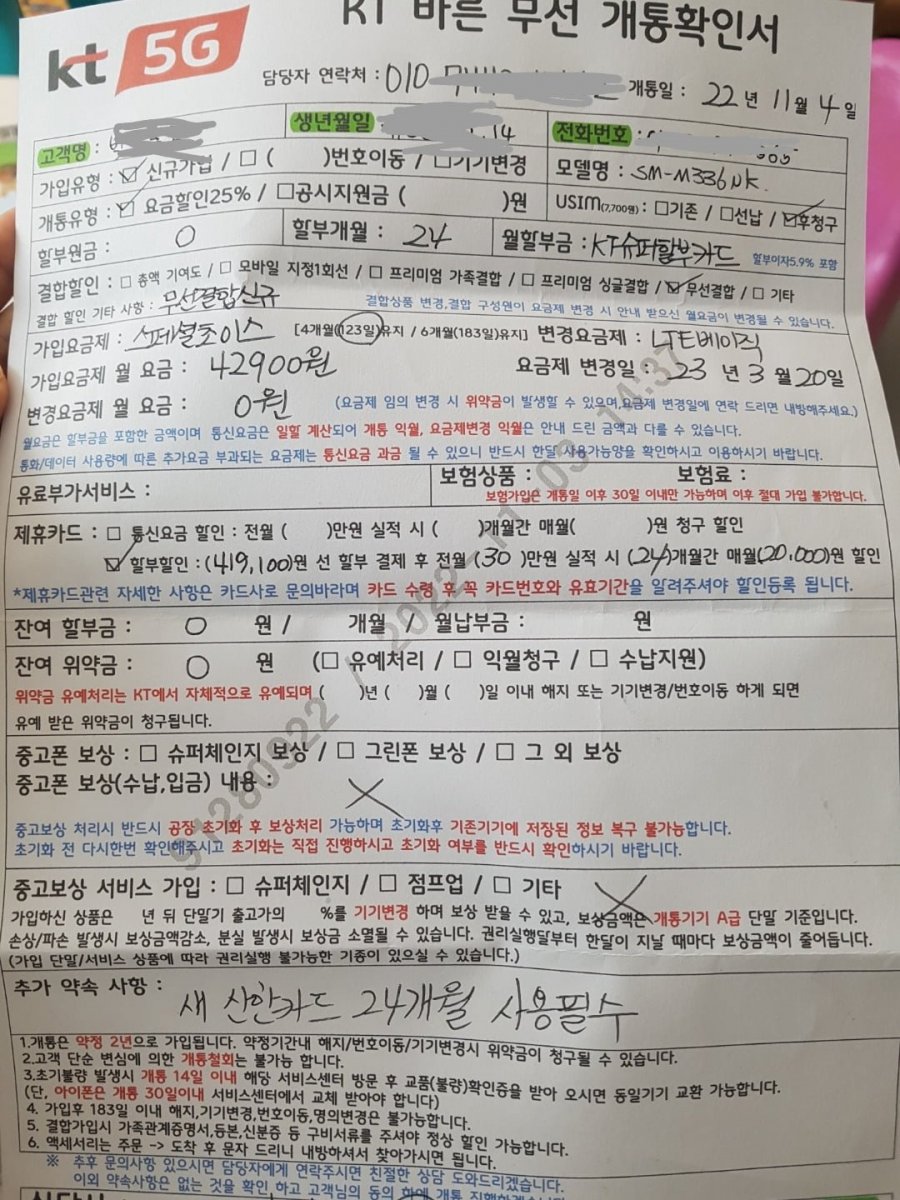 kt 5G
KT 바른 무선 개통확인서
담당자 연락처 : 010- 개통일 : 22 년 11 월 4 일
고객명 : 생년월일 14 전화번호 :
가입유형 : ☑ 신규가입 / □ ( )번호이동 / □기기변경 모델명 : SM-M336NK.
개통유형 : ☑ 요금할인25% / □공시지원금 ( )원 USIM(7,700원) : □기존 / □선납 / ☑후청구
할부원금 : 0 할부개월 : 24 월할부금 : KT슈퍼할부카드 할부이자5.9% 포함
결합할인 : □ 총액 기여도 / □ 모바일 지정1회선 / □ 프리미엄 가족결합 / □ 프리미엄 싱글결합 / ☑ 무선결합 / □ 기타
결합 할인 기타 사항 : 무선결합신규 결합상품 변경,결합 구성원이 요금제 변경 시 안내 받으신 월요금이 변경될 수 있습니다.
가입요금제 : 스페셜초이스 [4개월(123일)유지 / 6개월(183일)유지] 변경요금제 : LTE베이직
가입요금제 월 요금 : 42900원 요금제 변경일 : 23 년 3 월 20일
변경요금제 월 요금 : 0원 (요금제 임의 변경 시 위약금이 발생할 수 있으며,요금제 변경일에 연락 드리면 내방해주세요.)
월요금은 할부금을 포함한 금액이며 통신요금은 일할 계산되어 개통 익월, 요금제변경 익월은 안내 드린 금액과 다를 수 있습니다.
통화/데이터 사용량에 따른 추가요금 부과되는 요금제는 통신요금 과금 될 수 있으니 반드시 한달 사용가능양을 확인하시고 이용하시기 바랍니다.
유료부가서비스 : 보험상품 : 보험료 :
보험가입은 개통일 이후 30일 이내만 가능하며 이후 절대 가입 불가합니다.
제휴카드 : □ 통신요금 할인 : 전월 ( )만원 실적 시 ( )개월간 매월( )원 청구 할인
☑ 할부할인 : (419,100)원 선 할부 결제 후 전월 (30 )만원 실적 시 (24)개월간 매월(20,000)원 할인
*제휴카드관련 자세한 사항은 카드사로 문의바라며 카드 수령 후 꼭 카드번호와 유효기간을 알려주셔야 할인등록 됩니다.
잔여 할부금 : 0 원 / 개월 / 월납부금 : 원
잔여 위약금 : 0 원 (□ 유예처리 / □ 익월청구 / □ 수납지원)
위약금 유예처리는 KT에서 자체적으로 유예되며 ( )년 ( )월 ( )일 이내 해지 또는 기기변경/번호이동 하게 되면
유예 받은 위약금이 청구됩니다.
중고폰 보상 : □ 슈퍼체인지 보상 / □ 그린폰 보상 / □ 그 외 보상
중고폰 보상(수납,입금) 내용 :
중고보상 처리시 반드시 공장 초기화 후 보상처리 가능하며 초기화후 기존기기에 저장된 정보 복구 불가능합니다.
초기화 전 다시한번 확인해주시고 초기화는 직접 진행하시고 초기화 여부를 반드시 확인하시기 바랍니다.
중고보상 서비스 가입 : □ 슈퍼체인지 / □ 점프업 / □ 기타
가입하신 상품은 년 뒤 단말기 출고가의 %를 기기변경 하며 보상 받을 수 있고, 보상금액은 개통기기 A급 단말 기준입니다.
손상/파손 발생시 보상금액감소, 분실 발생시 보상금 소멸될 수 있습니다. 권리실행달부터 한달이 지날 때마다 보상금액이 줄어듭니다.
(가입 단말/서비스 상품에 따라 권리실행 불가능한 기종이 있으실 수 있습니다.)
추가 약속 사항 :
새 신한카드 24개월 사용필수
1.개통은 약정 2년으로 가입됩니다. 약정기간내 해지/번호이동/기기변경시 위약금이 청구될 수 있습니다.
2.고객 단순 변심에 의한 개통철회는 불가능 합니다.
3.초기불량 발생시 개통 14일 이내 해당 서비스센터 방문 후 교품(불량)확인증을 받아 오시면 동일기기 교환 가능합니다.
(단, 아이폰은 개통 30일이내 서비스센터에서 교체 받아야 합니다)
4. 가입후 183일 이내 해지,기기변경,번호이동,명의변경은 불가능합니다.
5. 결합가입시 가족관계증명서,등본,신분증 등 구비서류를 주셔야 정상 할인 가능합니다.
6. 액세서리는 주문 -> 도착 후 문자 드리니 내방하셔서 찾아가시면 됩니다.
※ 추후 문의사항 있으시면 담당자에게 연락주시면 친절한 상담 도와드리겠습니다.
이외 약속사항은 없는 것을 확인 하고 고객님의 동의 하에 개통 진행하겠습니다.
91280922 / 2022-11-03 14:37